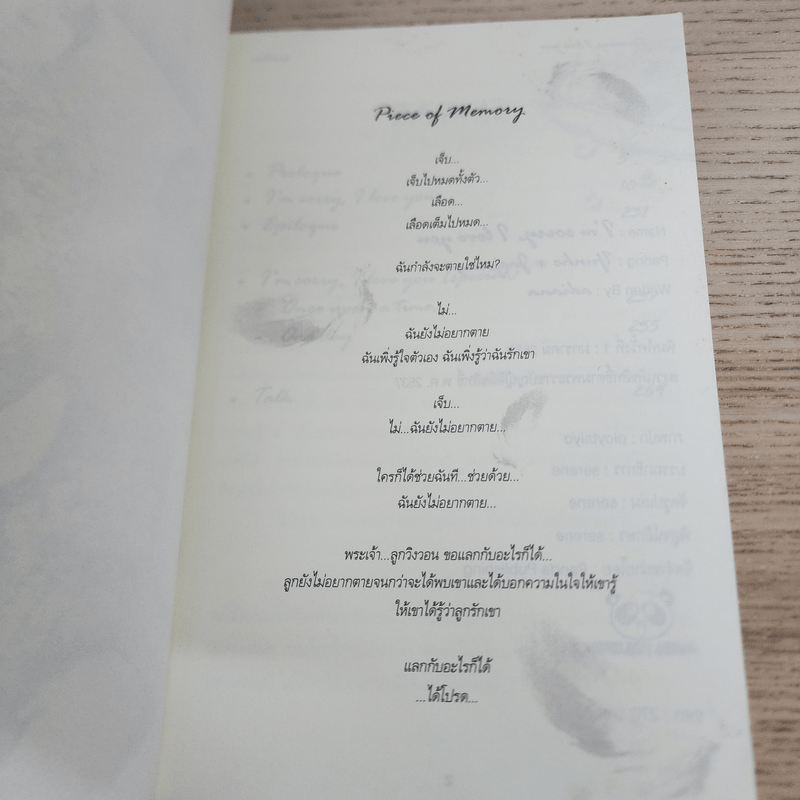 Piece of Memory
เจ็บ...
เจ็บไปหมดทั้งตัว...
เลือด...
เลือดเต็มไปหมด...
ฉันกำลังจะตายใช่ไหม?
ไม่...
ฉันยังไม่อยากตาย
ฉันเพิ่งรู้ใจตัวเอง ฉันเพิ่งรู้ว่าฉันรักเขา
เจ็บ...
ไม่...ฉันยังไม่อยากตาย...
ใครก็ได้ช่วยฉันที...ช่วยด้วย...
ฉันยังไม่อยากตาย...
พระเจ้า...ลูกวิงวอน ขอแลกกับอะไรก็ได้...
ลูกยังไม่อยากตายจนกว่าจะได้พบเขาและได้บอกความในใจให้เขารู้
ให้เขาได้รู้ว่าลูกรักเขา
แลกกับอะไรก็ได้
...ได้โปรด...